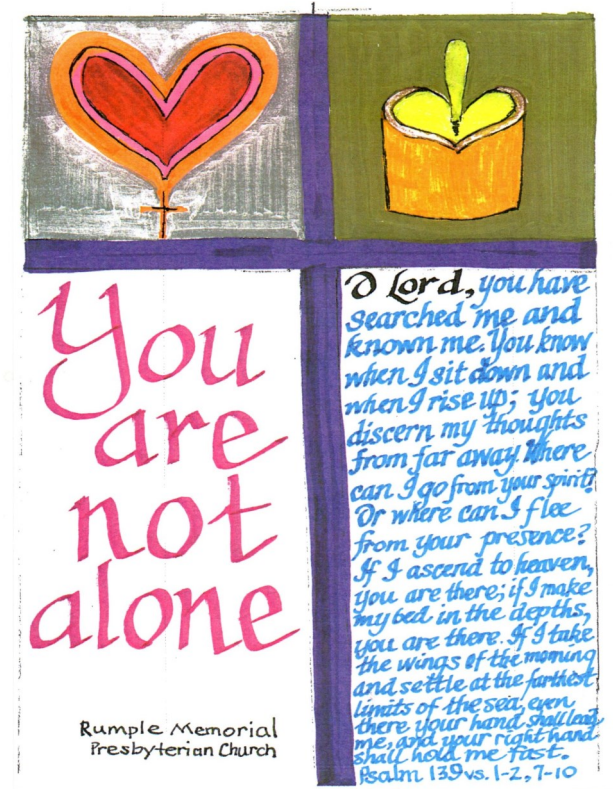 You
are
not
alone
Rumple Memorial
Presbyterian Church
O Lord, you have
searched me and
known me. You know
when I sit down and
when I rise up; you
discern my thoughts
from far away. Where
can I go from your spirit?
Or where can I flee
from your presence?
If I ascend to heaven,
you are there; if I make
my bed in the depths,
you are there. If I take
the wings of the morning
and settle at the farthest
limits of the sea, even
there your hand shall lead
me, and your right hand
shall hold me fast.
Psalm 139 vs. 1-2, 7-10